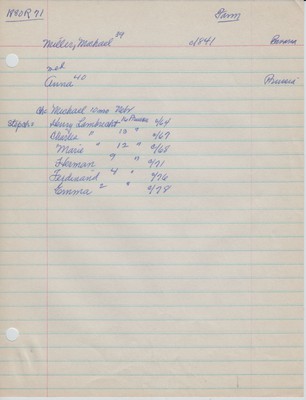 1880 R 71 Farm
Miller, Michael 39 0/1841
2nd
Anna 40 Prussia
Ch: Michael 10 mo Nebr
Stepch: Henry Lambrecht 16 Prussia 0/64
Charles " 13 " 0/67
Marie " 12 " 0/68
Herman 9 " 0/71
Ferdinand 4 " 0/76
Emma 2 " 0/78